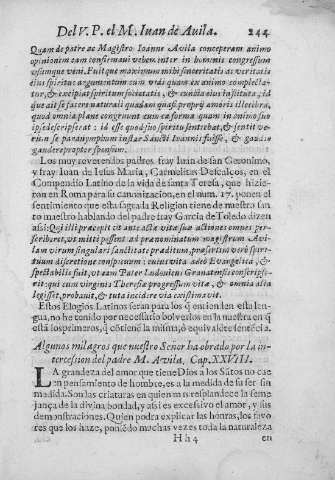 Del V. P. el M. Iuan de Auila. 244
Quam de patre ac Magistro Ioanne Avila conceperam animo
opinionem tam confirmaui vehementer in hominis congressum
ipsumque veni. Fuit que maximum mihi sinceritatis ac veritatis
eius spiritus argumentum cum vidi quam ex animo complecta-
tur, & excipiat spiritum societatis, & cuncta eius instituta, id
que ait se facere naturali quadam quasi proprij amoris illecebra,
quod omnia plane congruunt cum ea forma quam in animo suo
ipse descripserat: id esse quod suo spiritu sentiebat, & sentit ve-
rū se paranymphum instar Sancti Ioannis fuisse, & gaudio
gaudere propter sponsum.
Los muy reuerendos padres fray Iuan de san Geronimo,
y fray Iuan de Iesus Maria, Carmelitas Descalços, en el
Compendio Latino de la vida de santa Teresa, que hizie-
ron en Roma para su canonizacion, en el num. 17. ponen el
sentimiento que esta sagrada Religion tiene de nuestro san
to maestro hablando del padre fray Garcia de Toledo dizen
assi: Qui illi præcepit vt ante acta vitæ suæ actiones omnes per-
scriberet, vt mitti possent ad prænominatum magistrum Avi-
lam virum singulari sanctitate præditum, præsertim vero spiri-
tuum discretione conspicuum: cuius vita adeo Euangelica, &
spectabilis fuit, vt eam Pater Ludouicus Granatensis conscripse-
rit: qui cum virginis Theresiæ progressum vitæ, & omnia alia
legisset, probauit, & tuta incidere via existimauit.
Estos Elogios Latinos seran para los q̃ entienden esta len-
gua, no he tenido por necessario boluellos en la nuestra en q̃
està los primeros, q̃ cōtienē la misma, ò equiualēte sentēcia.
Algunos milagros que nuestro Señor ha obrado por la in-
tercession del padre M. Avila. Cap. XXVIII.
LA grandeza del amor que tiene Dios a los Sātos no cae
en pensamiento de hombre, es a la medida de su ser sin
medida. Son las criaturas en quien mas resplandece la seme
jança de la diuina bondad, y assi es excessiuo el amor, y sus
demonstraciones. Quien podra explicar las honras, los fauo
res que los haze, poniēdo muchas vezes toda la naturaleza
Hh 4 en